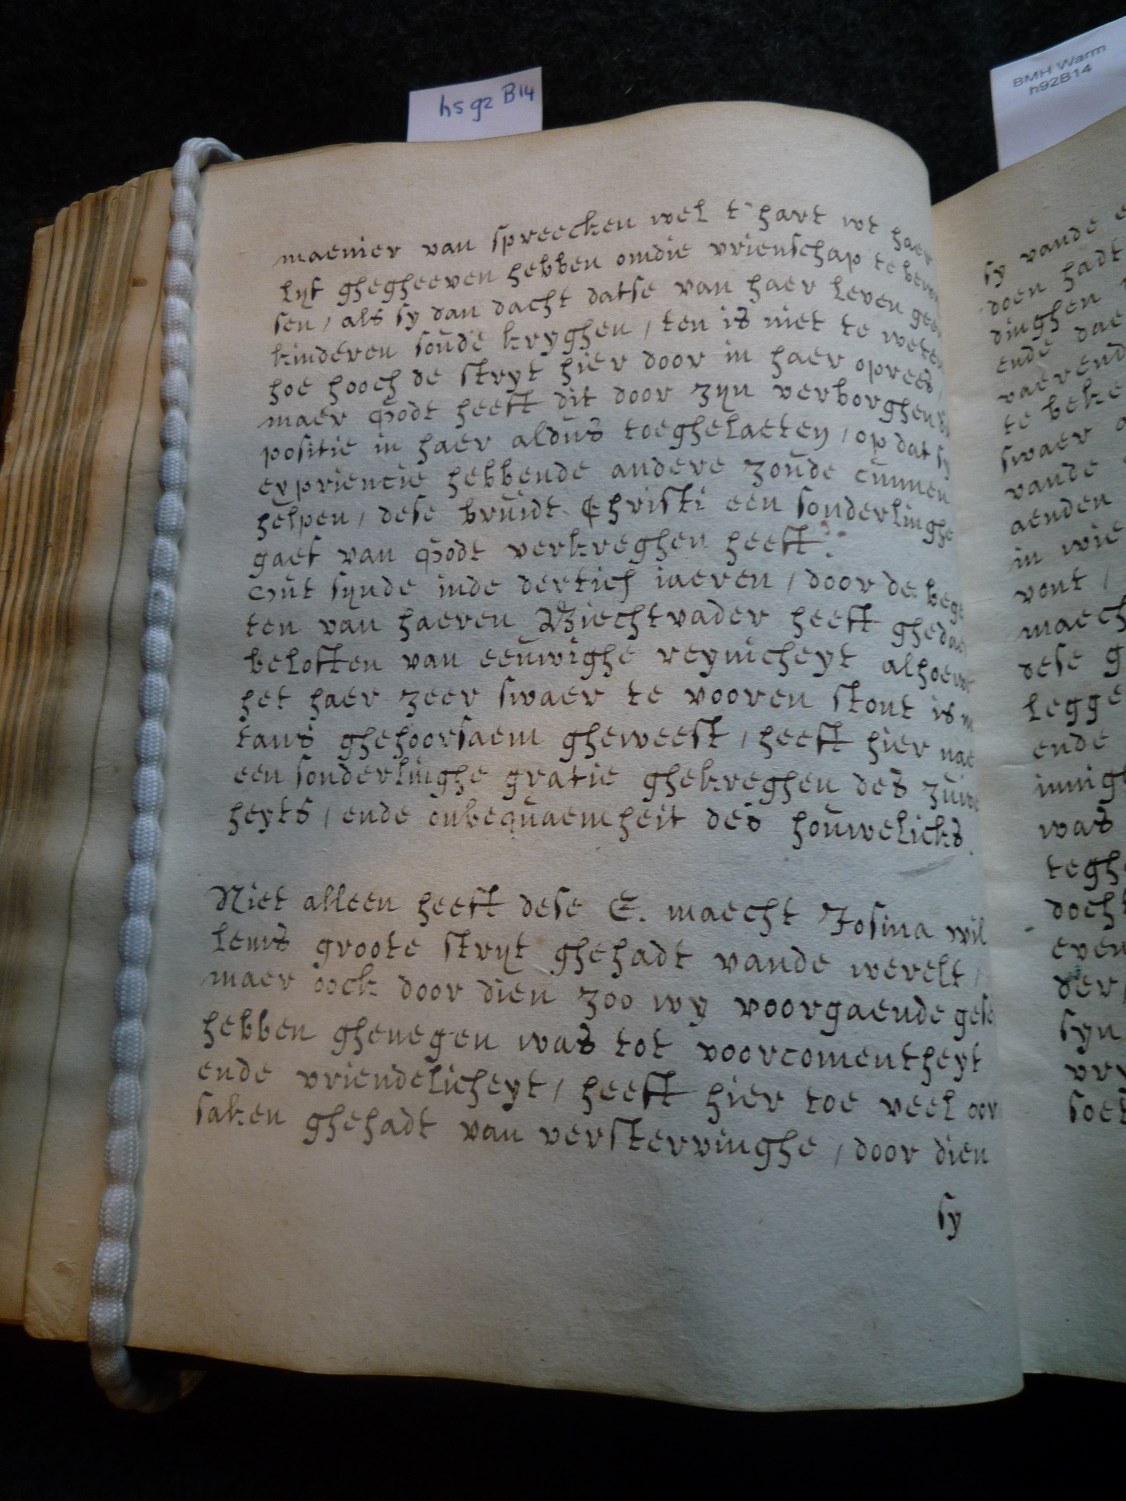 hs 92 B14
BMH Warm
h92B14
maenier van spreecken wel t' hart wt haer
lijf ghegheeven hebben omdie vrienschap te
sen / als sy dan dacht datse van haer leven
kinderen soude kryghen / ten is niet te weten
hoe hooch de stryt hier door in haer oprees
maer Godt heeft dit door zijn verborghen
positie in haer aldus toeghelaeten / op dat sy
expriencie hebbende andere zoude cunnen
helpen / dese bruidt Christi een sonderlinghe
gaef van Godt verkreghen heeft.
Out sijnde inde dertich iaeren / door de
ten van haeren Biechtvader heeft
beloften van eeuwighe reynicheyt
het haer zeer swaer te vooren stont is
tans ghehoorsaem gheweest / heeft hier nae
een sonderlinghe gratie ghekreghen des
heyts / ende onbequaemheit des houwelicks.
Niet alleen heeft dese E. maecht Josina wil
lems groote strijt ghehadt vande werelt /
maer oock door dien zoo wy voorgaende
hebben ghenegen was tot voorcomentheyt
ende vriendelicheyt / heeft hier toe veel oor
saken ghehadt van verstervinghe / door dien
sy
sy vande
doen hadt
dinghen
ende
te beke
swaer
vande
aenden
in wie
vont /
maech
dese g
legge
ende
innig
was
tegh
docht
even
der
syn
vry
soet